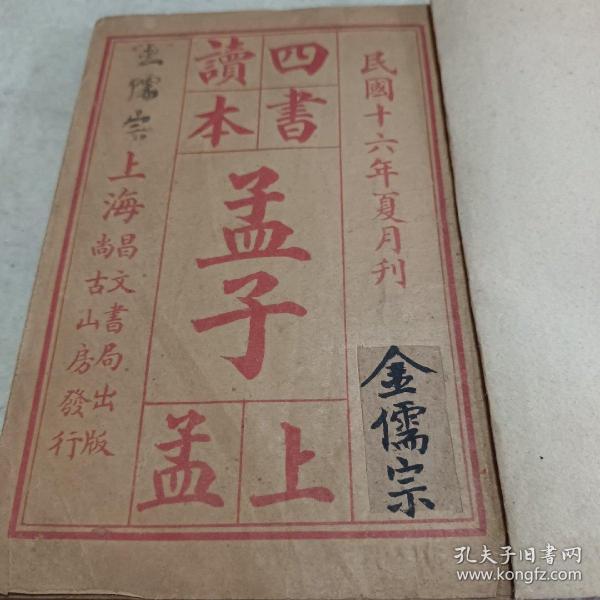 民國十六年夏月刊
金儒宗
四書
讀本
孟子
上
孟
金儒宗
上海
昌文書局出版
尚古山房發行
孔夫子旧书网
www.kongfz.com